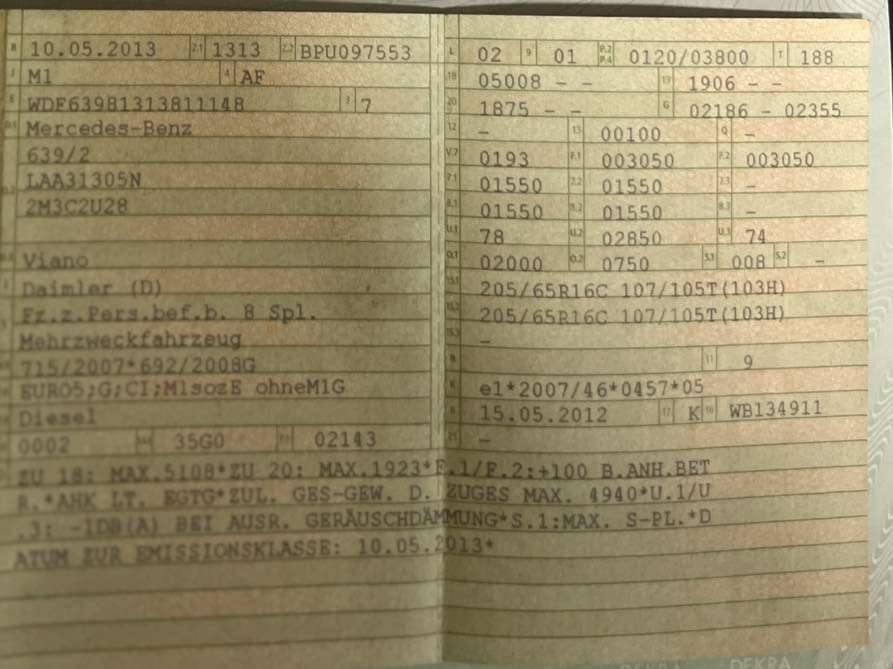 B 10.05.2013 2.1 1313 2.2 BPU097553
J M1 4 AF
E WDF63981313811148 3 7
D.1 Mercedes-Benz
639/2
D.2 LAA31305N
2M3C2U28
D.3 Viano
2 Daimler (D)
5 Fz.z.Pers.bef.b. 8 Spl.
Mehrzweckfahrzeug
V.9 715/2007*692/2008G
14 EURO5;G;CI;M1sozE ohneM1G
P.3 Diesel
10 0002 14.1 35G0 P.1 02143
L 02 9 01 P.2 P.4 0120/03800 T 188
18 05008 - - 19 1906 - -
20 1875 - - G 02186 - 02355
12 - 13 00100 Q -
V.7 0193 F.1 003050 F.2 003050
7.1 01550 7.2 01550 7.3 -
8.1 01550 8.2 01550 8.3 -
U.1 78 U.2 02850 U.3 74
O.1 02000 O.2 0750 S.1 008 S.2 -
15.1 205/65R16C 107/105T(103H)
15.2 205/65R16C 107/105T(103H)
15.3 -
R 11 9
K e1*2007/46*0457*05
6 15.05.2012 17 K 16 WB134911
21 -
22 ZU 18: MAX.5108*ZU 20: MAX.1923*F.1/F.2:+100 B.ANH.BET
R.*AHK LT. EGTG*ZUL. GES-GEW. D. ZUGES MAX. 4940*U.1/U
.3: -1DB(A) BEI AUSR. GERÄUSCHDÄMMUNG*S.1:MAX. S-PL.*D
ATUM ZUR EMISSIONSKLASSE: 10.05.2013*
DEKRA